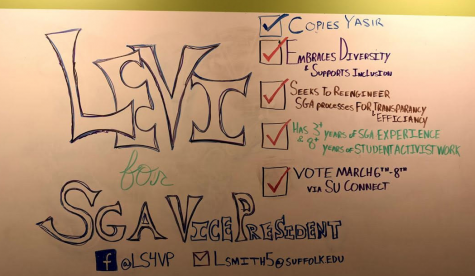 LEVI
for
SGA VICE PRESIDENT
f @LS4VP LSMITH5@SUFFOLK.EDU
COPIES YASIR
EMBRACES DIVERSITY
& SUPPORTS INCLUSION
SEEKS TO REENGINEER
SGA PROCESSES FOR TRANSPARANCY
& EFFICIANCY
HAS 3+ YEARS OF SGA EXPERIENCE
& 8+ YEARS OF STUDENT ACTIVIST WORK
VOTE MARCH 6TH-8TH
VIA SU CONNECT